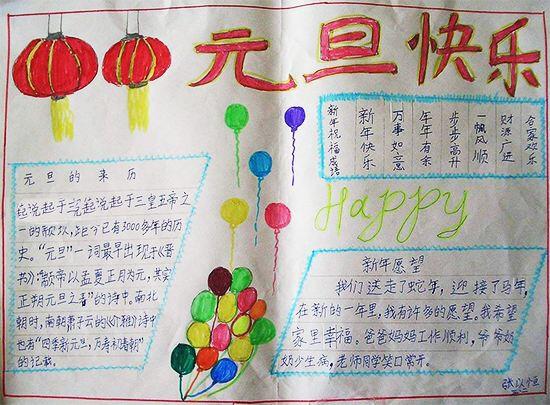 元旦快乐
新年祝福成语
新年快乐
万事如意
年年有余
步步高升
一帆风顺
财源广进
合家欢乐
Happy
元旦的来历
起说起于三皇五帝之
一的颛顼,距今已有3000多年的历
史。“元旦”一词最早出现于《晋
书》:“颛帝以孟夏正月为元,其实
正朔元旦之春”的诗中。南北
朝时,南朝萧子云的《介雅》诗中
也有“四季新元旦,万寿初春朝”
的记载。
新年愿望
我们送走了蛇年,迎接了马年,
在新的一年里,我有许多的愿望。我希望
家里幸福。爸爸妈妈工作顺利,爷爷奶
奶少生病,老师同学笑口常开。
张以恒